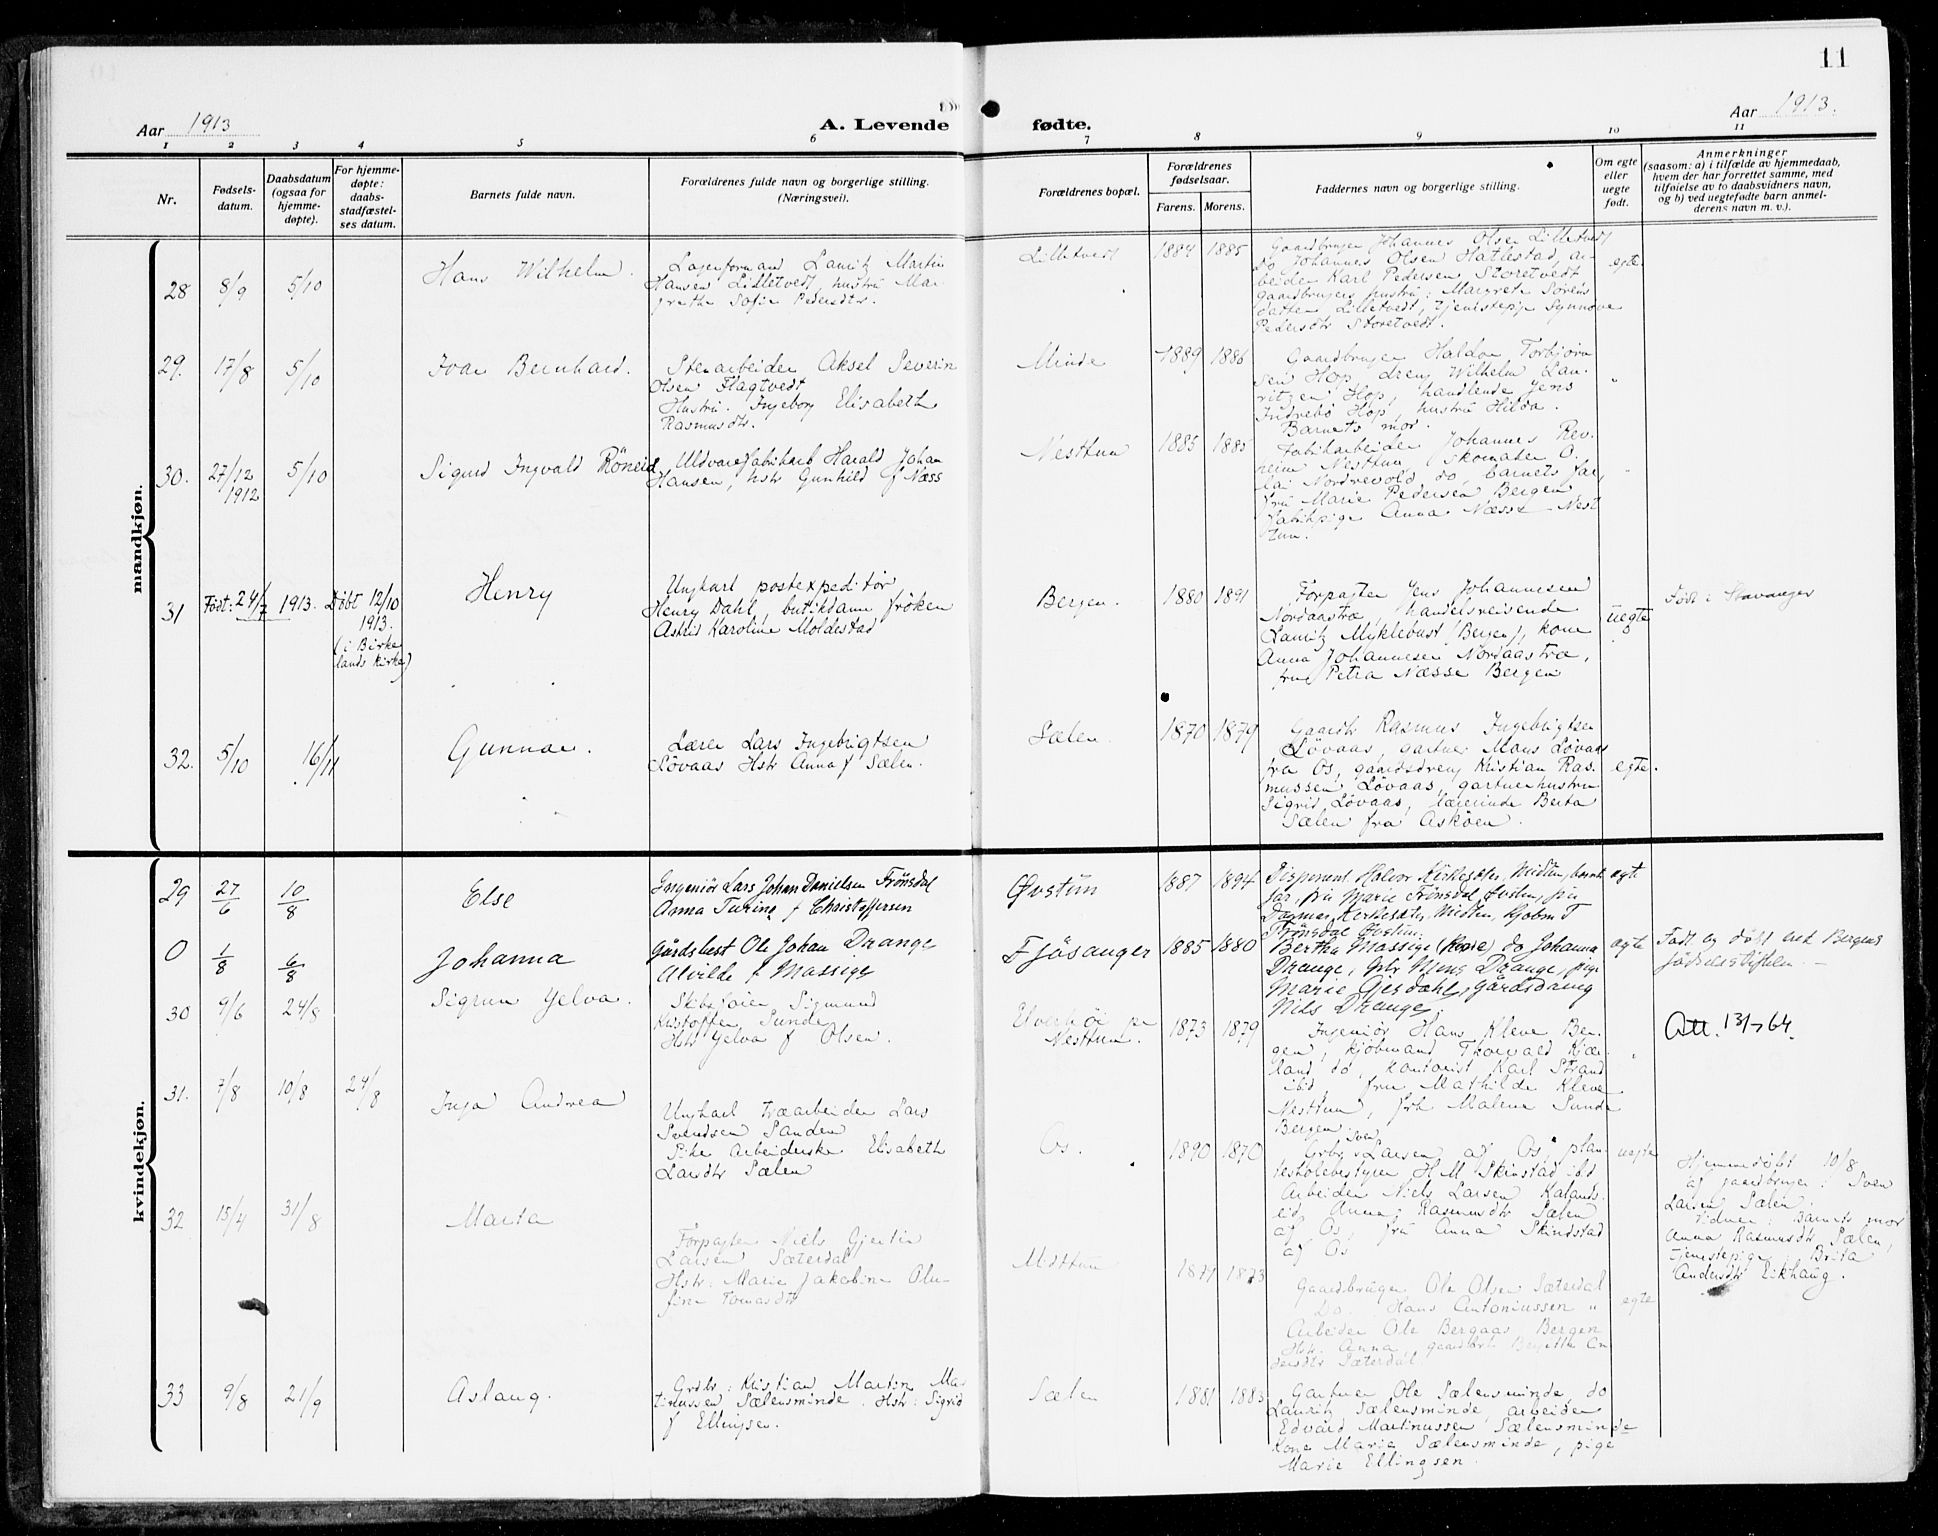 11
Aar 1913
A. Levende fødte.
Aar 1913.
1 2 3 4 5 6 7 8 9 10 11
Nr.
Fødsels-
datum.
Daabsdatum
(ogsaa for
hjemme-
døpte).
For hjemme-
døpte:
daabs-
stadfæstel-
ses datum.
Barnets fulde navn.
Forældrenes fulde navn og borgerlige stilling.
(Næringsvei).
Forældrenes bopæl.
Forældrenes
fødselsaar.
Farens. Morens.
Faddernes navn og borgerlige stilling.
Om egte
eller
uegte
født.
Anmerkninger
(saasom: a) i tilfælde av hjemmedaab,
hvem der har forrettet samme, med
tilføielse av to daabsvidners navn,
og b) ved uegtefødte barn anmel-
derens navn m. v.).
mandkjøn.
28 8/9 5/10
Hans Wilhelm.
Lagerformand Lauritz Martin
Hansen Lilletvedt, hustru Mar
grethe Sofie Pedersdtr.
Lilletvedt 1884 1885
Gaardbruger Johannes Olsen Lilletvedt
do Johannes Olsen Hatlestad, ar-
beider Karl Pedersen Storetvedt
gaardbrugers hustru: Margrete Sørens
datter Lilletvedt, tjenestepje Synnøve
Pedersdtr Storetvedt.
egte.
29. 17/8 5/10
Ivar Bernhard.
Stenarbeider Aksel Severin
Olsen Flagtvedt
Hustru. Ingeborg Elisabeth
Rasmusdtr.
Minde 1889 1886
Gaardbruger Haldor Torbjørn
sen Hop, dreng Wilhelm Lau-
ritzen Hop, handlende Jens
Indrebø Hop, hustru Hilda.
Barnets mor.
"
30. 27/12 1912 5/10
Sigurd Ingvald Röneid
Uldvarefabrikarb Harald Johan
Hansen, hstr Gunhild f Næss
Nesttun 1885 1885
Fabrikarbeider Johannes Rev
heim Nesttun, skomaker O.
lai Nordrevold do, barnets far,
fru Marie Pedersen Bergen
fabrikpige Anna Næsse Nest
tun.
"
31 Født: 24/7 1913. Døbt 12/10
1913.
(i Birke
lands kirke)
Henry
Ungkarl postexpeditør
Henry Dahl, butikdame frøken
Astrid Karoline Moldestad
Bergen. 1880 1891
Forpagter Jens Johannesen
Nordaastræ, handelsreisende
Lauritz Myklebust (Bergen), kone
Anna Johannesen Nordaastræ,
frue Petra Næsse Bergen
uegte
Født i Stavanger
32. 5/10 16/11
Gunnar.
Lærer Lars Ingebrigtsen
Løvaas Hstr Anna f Sælen.
Sælen. 1870 1879
Gaardbr Rasmus Ingebrigtsen
Løvaas, gartner Mons Løvaas
fra Os, gaardsdreng Kristian Ras-
mussen Løvaas, gartnerhustru
Sigrid Løvaas, lærerinde Berta
Sælen fra Askøen.
egte.
kvindekjøn.
29 27/6 10/8
Else
Ingeniör Lars Johan Danielsen Frönsdal
Anna Turine f Christoffersen
Øvstün 1887 1894
Disponent Halvor Kirkesæter, Midtün, barnets
far, fru Marie Frönsdal Øvstün, fru
Dagmar Kirkesæter, Midtün, Kjøbm T
Frönsdal Øvstün.
egte
0 1/8 6/8
Johanna
Gårdsbest Ole Johan Drange
Alvilde f Massige
Fjösanger 1885 1880
Bertha Massige (kone) do Johanna
Drange, Gbr Mons Drange, pige
Marie Gjesdahl, gårdsdreng
Nils Drange.
egte
Født og døbt ved Bergens
fødselsstiftelse. —
30 9/6 24/8
Sigrun Yelva.
Skibsfører Sigmund
Kristoffer Sunde
Hstr Yelva f Olsen.
Elverhöi pr
Nesttun. 1873 1879
Ingeniör Hans Kleve Ber-
gen, kjöbmand Thorvald Kjær-
land do, kontorist Karl Strand
ibid, fru Mathilde Kleve
Nesttun, frk Malene Sunde
Bergen
"
Att. 13/7 64.
31. 7/8 10/8 24/8
Inga Andrea
Ungkarl Træarbeider Lars
Svendsen Sanden
Pike Arbeiderske Elisabeth
Larsdtr Sælen
Os. 1890 1870
Grbr Sven Larsen af Os, plan-
teskolebestyrer H. M Skinstad ibd
Arbeider Niels Larsen Kaland.
eid, Anna Rasmusdtr Sælen
af Os, fru Anna Skindstad
af Os
uegte
Hjemmedøbt 10/8
af gaardbruger: Sven
Larsen Sælen.
Vidner: Barnets mor
Anna Rasmusdtr Sælen,
Tjenestepige Brita
Andersdtr Eikhaug.
32 15/4 31/8
Marta
Forpagter Niels Gjertin
Larsen Sæterdal
Hstr: Marie Jakobine Olu-
fine Tomasdtr
Midttun 1871 1873
Gaardbruger Ole Olsen Sæterdal
Do. Hans Antoniussen "
Arbeider Ole Bergaas Bergen
Hstr. Anna, gaardbrk Bergitte An
dersdtr Sæterdal.
egte
33 9/8 21/9
Aslaug.
Grdbr: Kristian Martin Mar
tinussen Sælensminde. Hstr: Sigrid
f Ellingsen.
Sælen 1881 1883
Gartner Ole Sælensminde, do
Lauritz Sælensminde, arbeider
Edvard Martinussen Sælensminde
Kone Marie Sælensminde, pige
Marie Ellingsen.